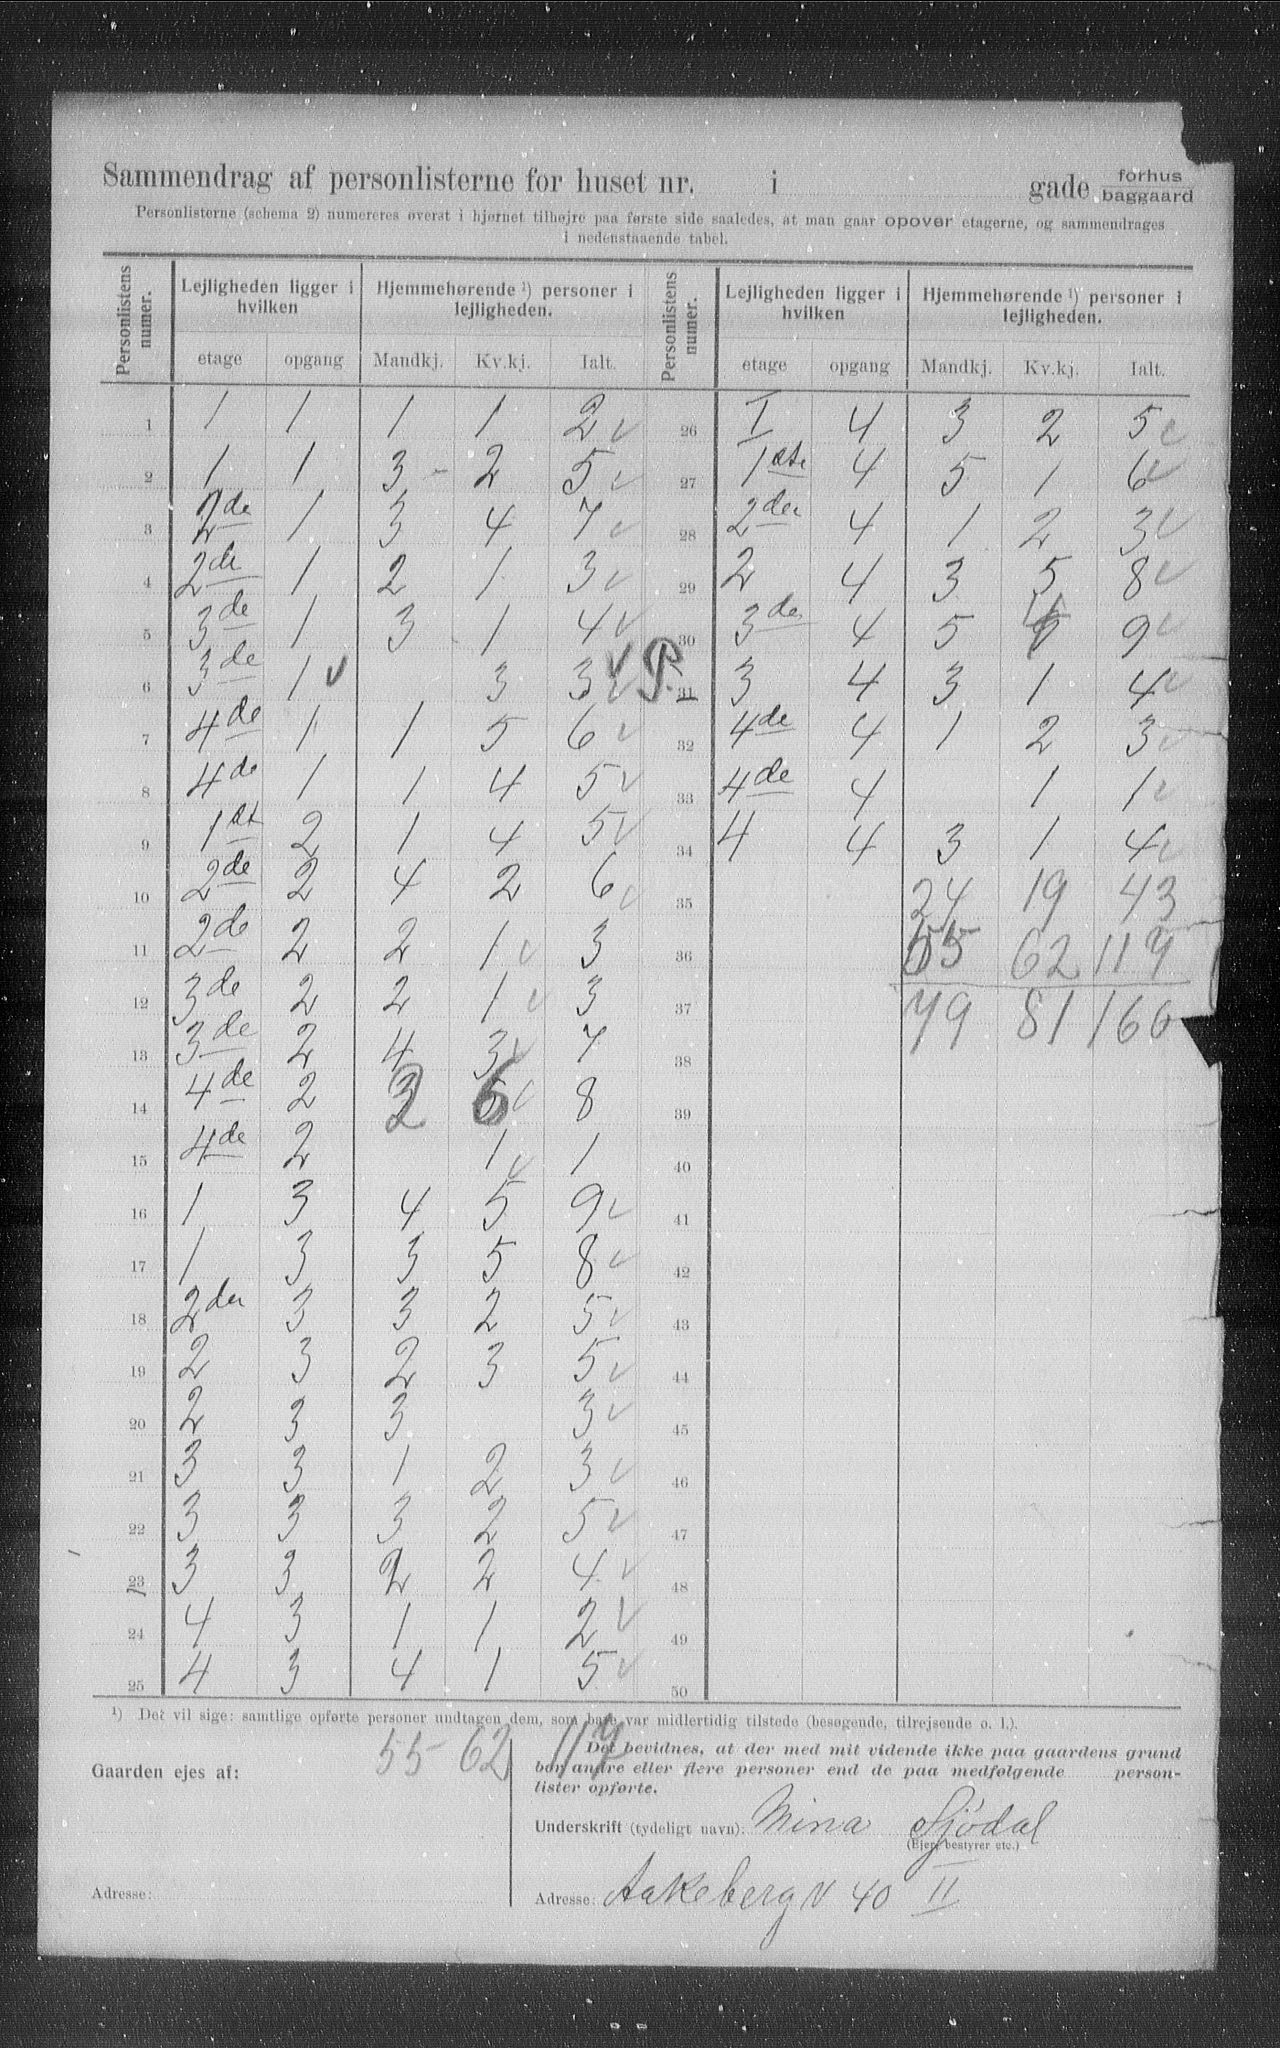 Sammendrag af personlisterne for huset nr. i gade forhus baggaard
Personlisterne (schema 2) numereres øverst i hjørnet tilhøjre paa første side saaledes, at man gaar opover etagerne, og sammendrages
i nedenstaaende tabel.
Personlistens numer. Lejligheden ligger i hvilken Hjemmehørende ¹) personer i lejligheden. Personlistens numer. Lejligheden ligger i hvilken Hjemmehørende ¹) personer i lejligheden.
etage opgang Mandkj. Kv.kj. Ialt. etage opgang Mandkj. Kv.kj. Ialt.
1 1 1 1 1 2 ✓ 26 I 4 3 2 5 ✓
2 1 1 3 - 2 5 ✓ 27 1ste 4 5 1 6 ✓
3 2de 1 3 4 7 ✓ 28 2den 4 1 2 3 ✓
4 2de 1 2 1 3 ✓ 29 2 4 3 5 8 ✓
5 3de 1 3 1 4 ✓ 30 3de 4 5 4 9 ✓
6 3de 1 ✓ 3 3 ✓ P. 31 3 4 3 1 4 ✓
7 4de 1 1 5 6 ✓ 32 4de 4 1 2 3 ✓
8 4de 1 1 4 5 ✓ 33 4de 4 1 1 ✓
9 1st 2 1 4 5 ✓ 34 4 4 3 1 4 ✓
10 2de 2 4 2 6 ✓ 35 24 19 43
11 2de 2 2 1 ✓ 3 36 55 62 117
12 3de 2 2 1 ✓ 3 37 79 81 160
13 3de 2 4 3 ✓ 7 38
14 4de 2 2 6 ✓ 8 39
15 4de 2 1 ✓ 1 40
16 1 3 4 5 9 ✓ 41
17 1 3 3 5 8 ✓ 42
18 2den 3 3 2 5 ✓ 43
19 2 3 2 3 5 ✓ 44
20 2 3 3 3 ✓ 45
21 3 3 1 2 3 ✓ 46
22 3 3 3 2 5 ✓ 47
23 3 3 2 2 4 ✓ 48
24 4 3 1 1 2 ✓ 49
25 4 3 4 1 5 ✓ 50
¹) Det vil sige: samtlige opførte personer undtagen dem, som bare var midlertidig tilstede (besøgende, tilrejsende o. l.).
55 62 117
Gaarden ejes af:
Adresse:
Det bevidnes, at der med mit vidende ikke paa gaardens grund
bor andre eller flere personer end de paa medfølgende person-
lister opførte.
Underskrift (tydeligt navn): Nina Sjödal
(Ejer, bestyrer etc.)
Adresse: Aakeberg v 40 II